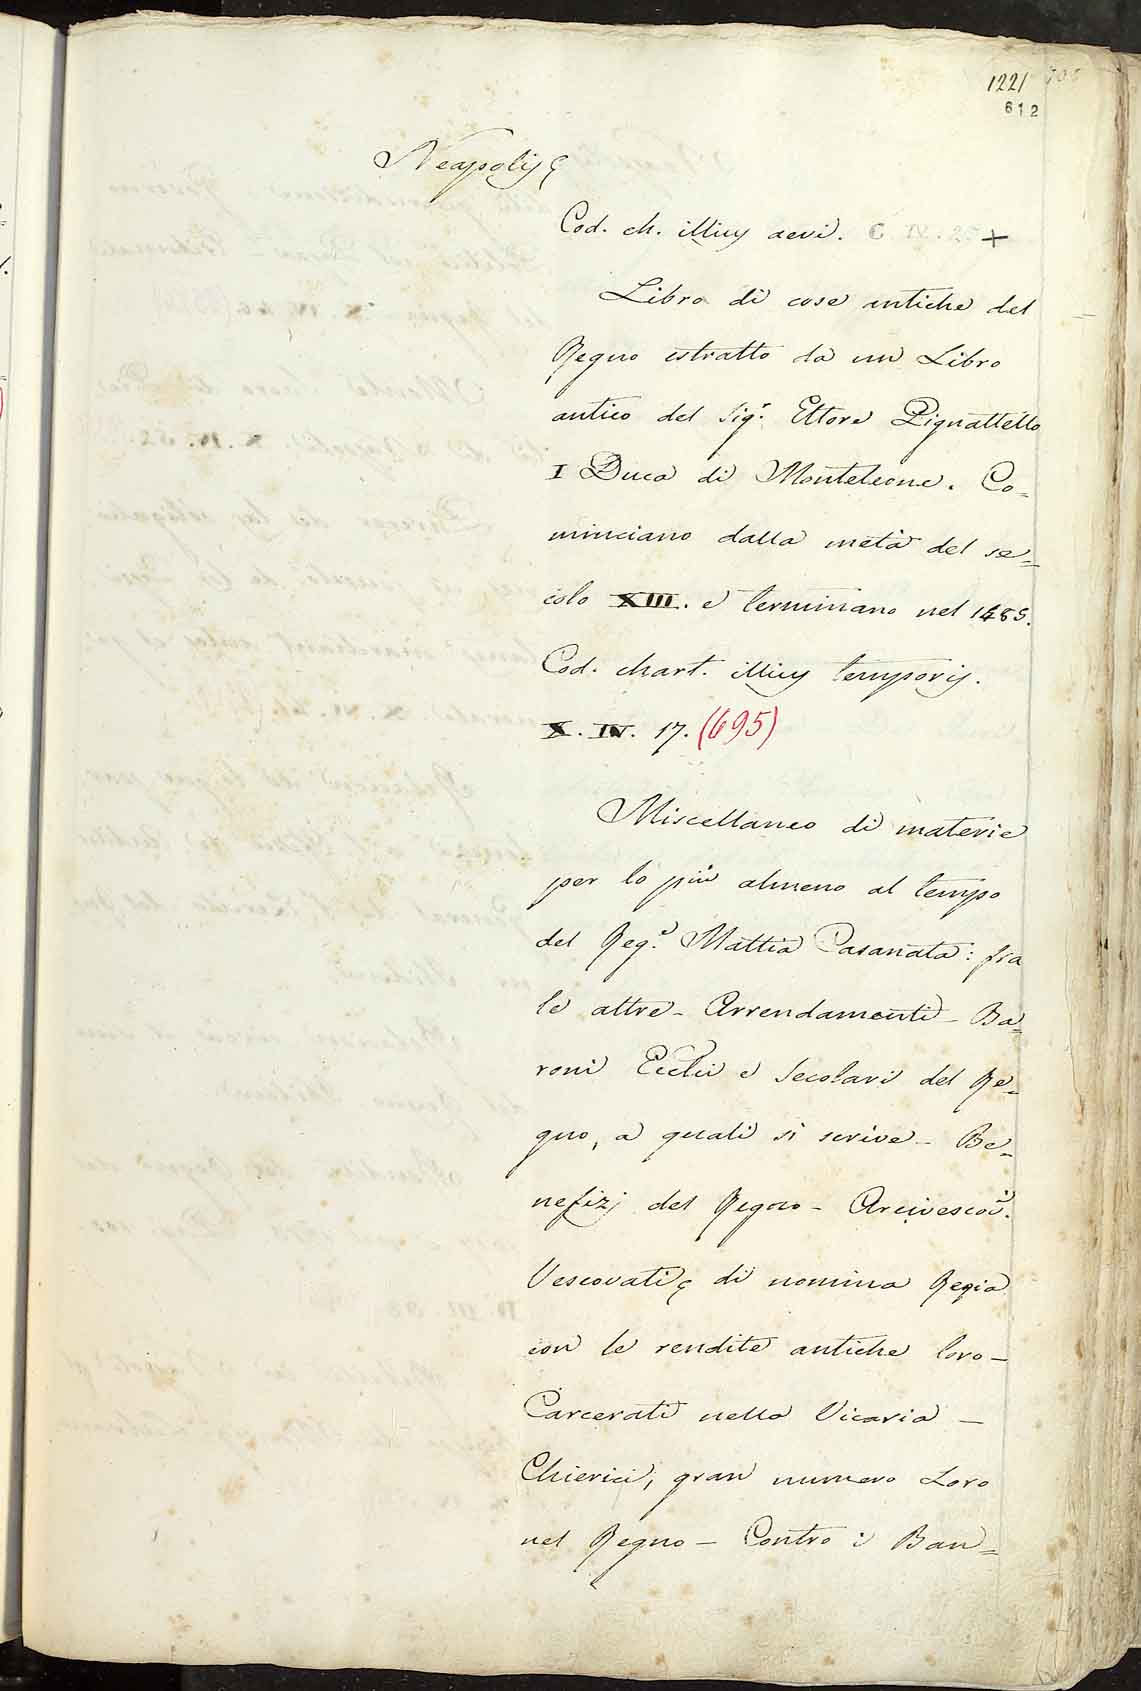 1221
612
Neapolis
Cod. ch. illius aevi. C. IV. 25 +
Libro di cose antiche del
Regno estratto da un Libro
antico del Sigr. Ettore Pignattello
I Duca di Monteleone. Co=
minciano dalla metà del se=
colo XIII. e terminano nel 1485.
Cod. chart. illius temporis.
X. IV. 17. (695)
Miscellaneo di materie
per lo più almeno al tempo
del Reg.e Mattia Casanata: fra
le altre - Arrendamenti - Ba=
roni Ecclii e Secolari del Re=
gno, a quali si scrive - Be=
nefizj del Regno - Arcivescovi.
Vescovati di nomina Regia
con le rendite antiche loro -
Carcerati nella Vicaria -
Chierici, gran numero Loro
nel Regno - Contro i Ban=